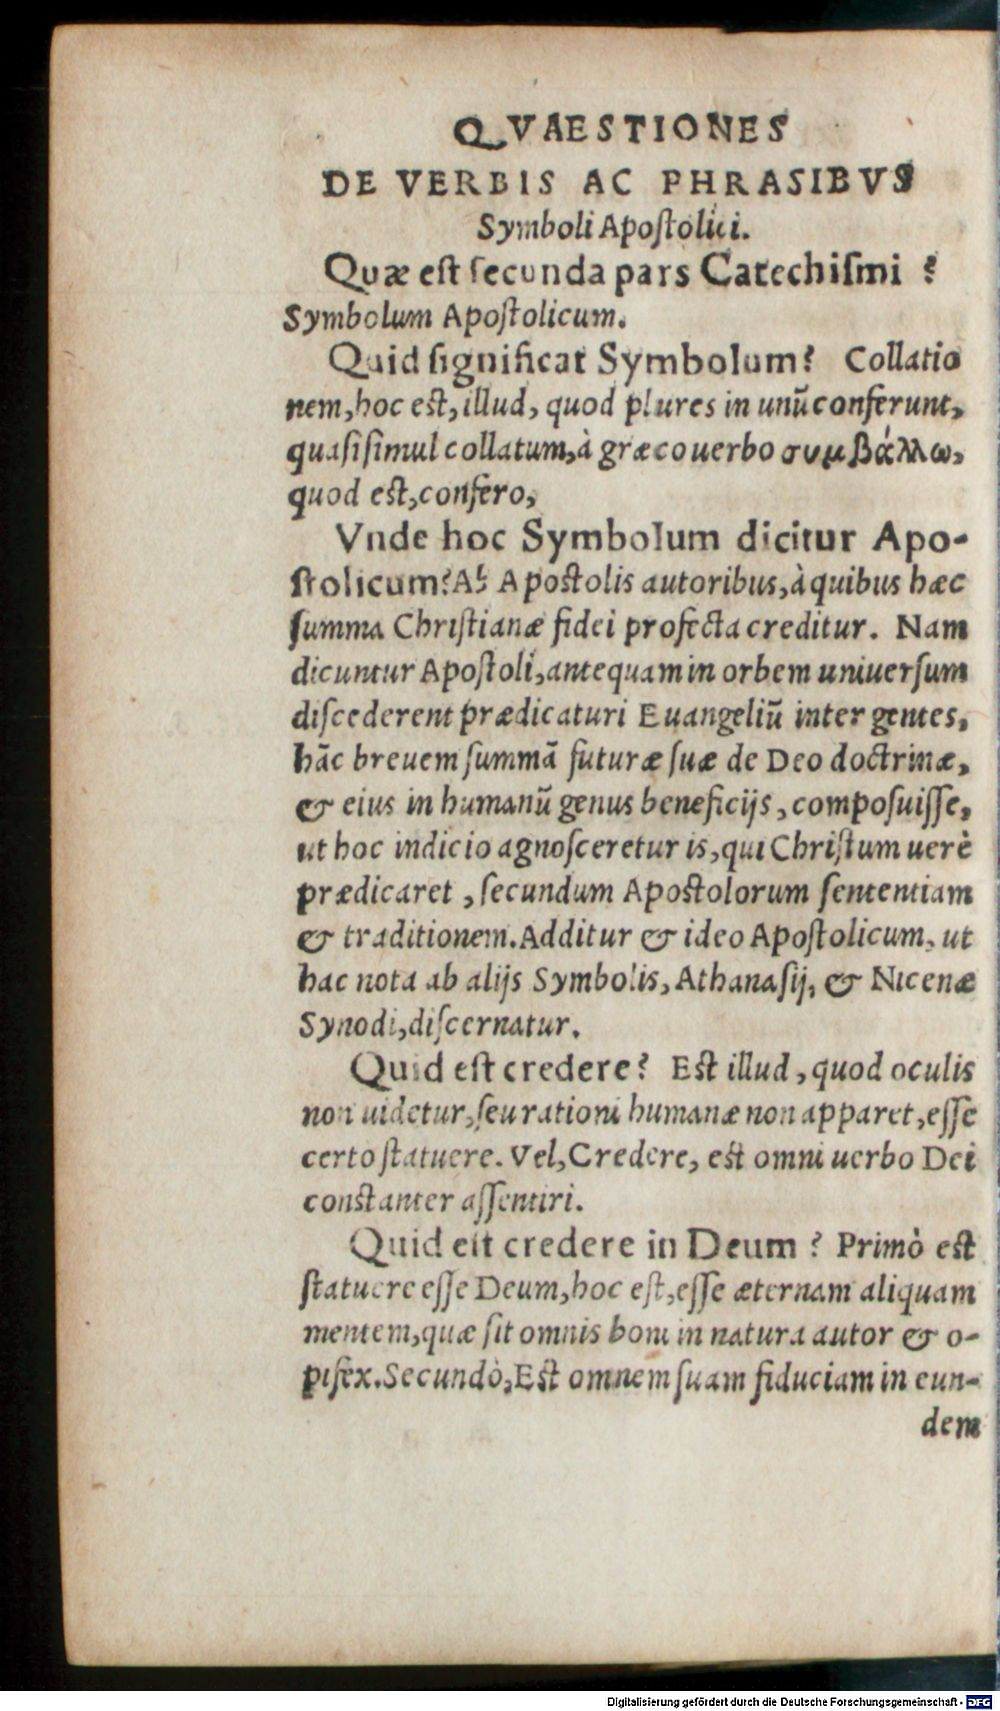 QVAESTIONES
DE VERBIS AC PHRASIBVS
Symboli Apoſtolici.
Quæ eſt ſecunda pars Catechiſmi ?
Symbolum Apoſtolicum.
Quid ſignificat Symbolum? Collatio
nem, hoc eſt, illud, quod plures in unū conferunt,
quaſi ſimul collatum, à græco uerbo συμβάλλω,
quod est, confero,
Vnde hoc Symbolum dicitur Apo-
ſtolicum? Ab Apoſtolis autoribus, à quibus hæc
ſumma Chriſtianæ fidei profecta creditur. Nam
dicuntur Apoſtoli, antequam in orbem uniuerſum
diſcederent prædicaturi Euangeliū inter gentes,
hāc breuem ſummā futuræ ſuæ de Deo doctrinæ,
& eius in humanū genus beneficijs, compoſuiſſe,
ut hoc indicio agnoſceretur is, qui Chriſtum uerè
prædicaret, ſecundum Apoſtolorum ſententiam
& traditionem. Additur & ideo Apoſtolicum, ut
hac nota ab alijs Symbolis, Athanaſij, & Nicenæ
Synodi, diſcernatur.
Quid eſt credere? Eſt illud, quod oculis
non uidetur, ſeu rationi humanæ non apparet, eſſe
certo ſtatuere. Vel, Credere, eſt omni uerbo Dei
conſtanter aſſentiri.
Quid eſt credere in Deum ? Primò eſt
ſtatuere eſſe Deum, hoc eſt, eſſe æternam aliquam
mentem, quæ ſit omnis boni in natura autor & o-
pifex. Secundò, Eſt omnem ſuam fiduciam in eun-
dem
Digitalisierung gefördert durch die Deutsche Forschungsgemeinschaft - DFG